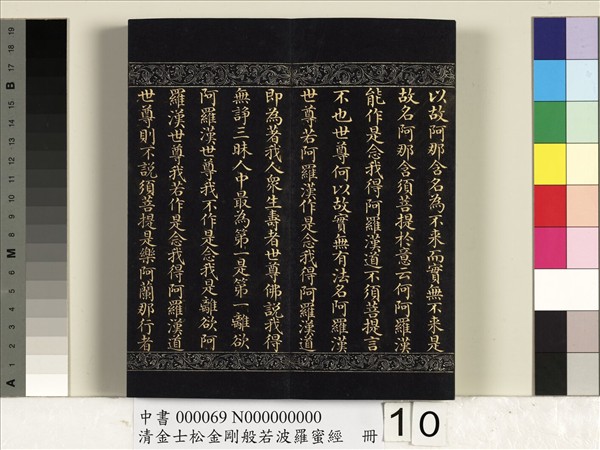 以故阿那含名為不来而實無不来是
故名阿那含須菩提於意云何阿羅漢
能作是念我得阿羅漢道不須菩提言
不也世尊何以故實無有法名阿羅漢
世尊若阿羅漢作是念我得阿羅漢道
即為著我人衆生壽者世尊佛說我得
無諍三昧人中最為第一是第一離欲
阿羅漢世尊我不作是念我是離欲阿
羅漢世尊我若作是念我得阿羅漢道
世尊則不說須菩提是樂阿蘭那行者
中書 000069 N000000000
清金士松金剛般若波羅蜜經 冊 10
A 1 2 3 4 5 6 M 8 9 10 11 12 13 B 17 18 19